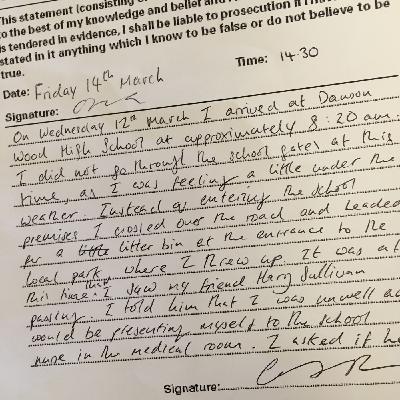 This statement (consisting
to the best of my knowledge and belief and I
is tendered in evidence, I shall be liable to prosecution if I ha
stated in it anything which I know to be false or do not believe to be
true.
Date: Friday 14th March Time: 14.30
Signature:
On Wednesday 12th March I arrived at Dawson
Wood High School at approximately 8:20 am.
I did not go through the school gates at this
time, as I was feeling a little under the
weather. Instead of entering the school
premises I crossed over the road and headed
for a little litter bin at the entrance to the
local park where I threw up. It was at
this time that I saw my friend Harry Sullivan
passing. I told him that I was unwell a
would be presenting myself to the school
nurse in the medical room. I asked if he
Signature: